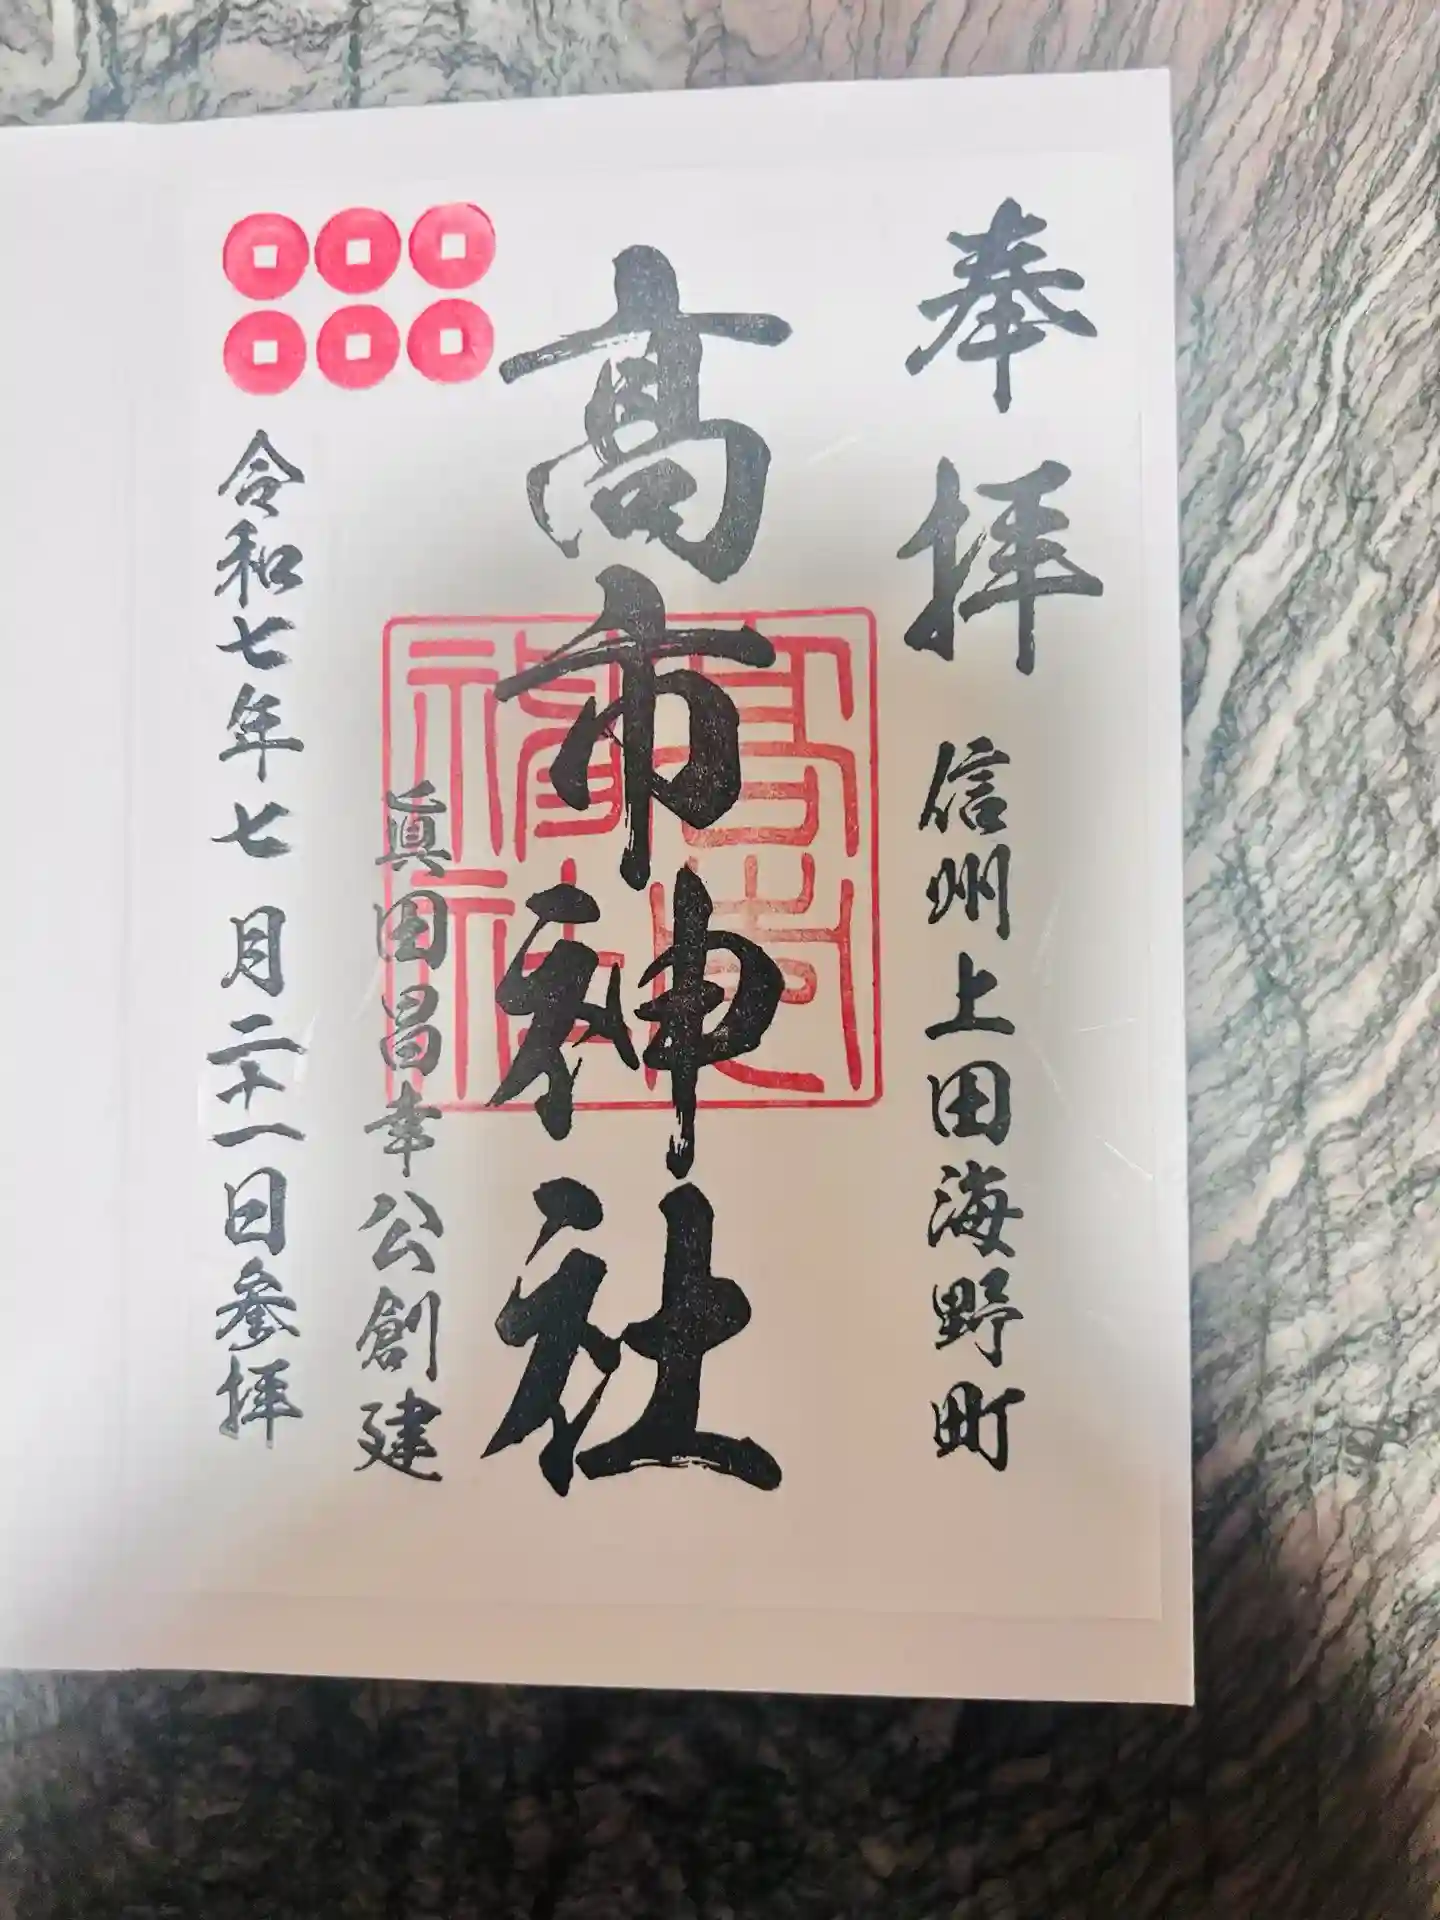 奉拝 信州上田海野町
髙市神社
眞田昌幸公創建
令和七年七月二十一日参拝